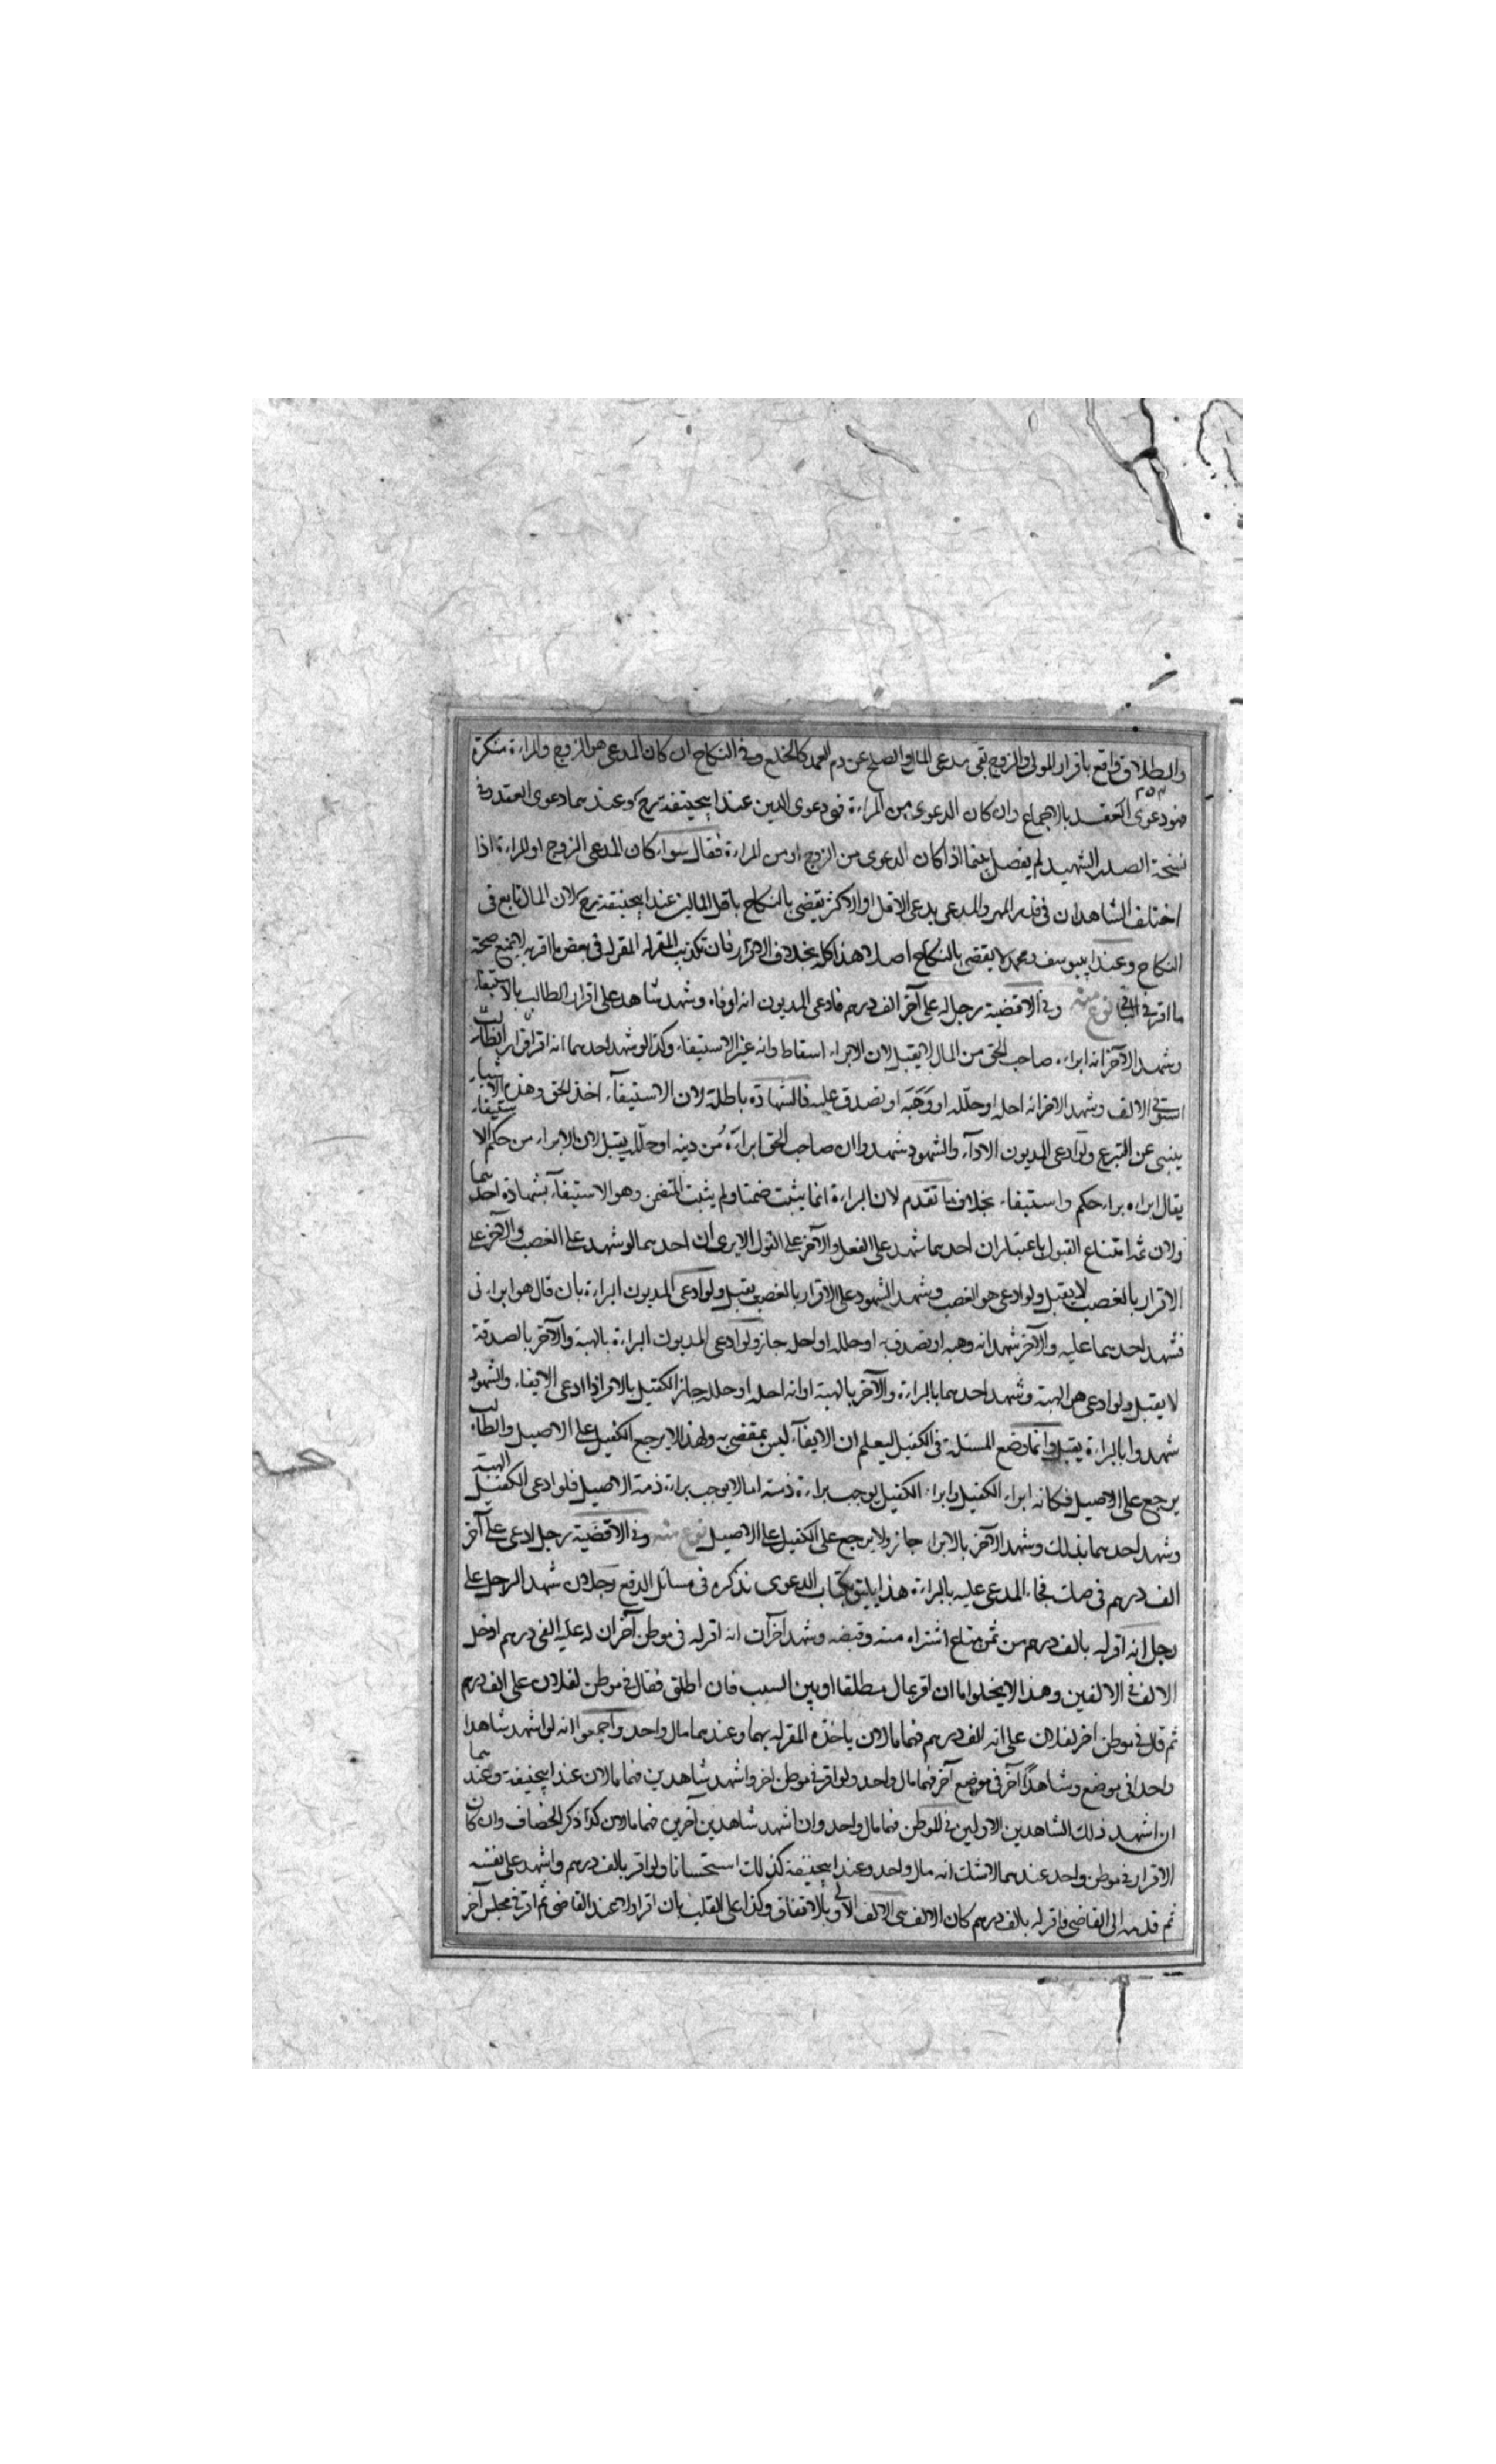 والطلاق واقع باقرار المولى والزوج بقى مدعى المال والصلح عن دم العمد كالخلع وفى النكاح ان كان المدعى هو الزوج والمراءة منكرة
فهو دعوى العقد بالاجماع وان كان الدعوى من المراءة فهى دعوى الدين عند ابيحنيفة رح وعندهما دعوى العقد وفى
نسخة الصدر الشهيد لم يفصل بينما اذا كان الدعوى من الزوج او من المراءة فقال سواء كان المدعى الزوج او المراءة اذا
اختلف الشاهدان فى قدر المهر والمدعى يدعى الاقل او الاكثر يقضى بالنكاح باقل المالين عند ابيحنيفة رح لان المال تابع فى
النكاح وعند ابييوسف ومحمد لا يقضى بالنكاح اصلا هذا كله بخلاف الاقرار فان تكذيب المقر له المقر له فى بعض ما اقر به لا يمنع صحة
ما اقر فى الباقى نوع منه وفى الاقضية رجل له على آخر الف درهم فادعى المديون انه اوفاه وشهد شاهد على اقرار الطالب بالاستيفاء
وشهد الآخر انه ابراه صاحب الحق من المال لا يقبل لان الابراء اسقاط وانه غير الاستيفاء وكذا لو شهد احدهما انه اقر اقرار الطالب
استوفى الالف وشهد الاخر انه احله او حلله او وهبه او تصدق عليه فالشهادة باطلة لان الاستيفاء اخذ الحق وهذه الاشياء
ينبى عن التبرع ولو ادعى المديون الاداء والشهود شهدوا ان صاحب الحق ابراه من دينه او حلله يقبل لان الابراء من حكم الاستيفاء
يقال ابراه براء حكم واستيفاء بخلاف ما تقدم لان البراءة انما يثبت ضمنا ولم يثبت المتضمن وهو الاستيفاء بشهادة احدهما
ولان ثمه امتناع القبول باعتبار ان احدهما شهد على الفعل والآخر على القول الا يرى ان احدهما لو شهد على الغصب والآخر على
الاقرار بالغصب لا يقبل ولو ادعى هو الغصب وشهد الشهود على الاقرار بالغصب يقبل ولو ادعى المديون البراءة بان قال هو ابرانى
فشهد احدهما عليه والآخر شهد انه وهبه او تصدق به او حلله او احله جاز ولو ادعى المديون البراءة بالهبة والآخر بالصدقة
لا يقبل ولو ادعى هو الهبة وشهد احدهما بالبراءة والآخر بالهبة او انه احله او حلله جاز الكفيل بالامر اذا ادعى الايفاء والشهود
شهدوا بالبراءة يقبل وانما وضع المسئلة فى الكفيل ليعلم ان الايفاء ليس بمقضى به ولهذا لا يرجع الكفيل على الاصيل والطالب
يرجع على الاصيل فكانه ابراء الكفيل وابراء الكفيل يوجب براءة ذمته اما لا يوجب براءة ذمة الاصيل فلو ادعى الكفيل الهبة
وشهد احدهما بذلك وشهد الآخر بالابراء جاز ولا يرجع على الكفيل على الاصيل نوع منه وفى الاقضية رجل ادعى على آخر
الف درهم فى صك فجاء المدعى عليه بالبراءة هذا يليق بكتاب الدعوى نذكره فى مسائل الدفع رجلان شهد الرجل على
رجل انه اقر له بالف درهم من ثمن متاع اشتراه منه وقبضه وشهد آخران انه اقر له فى موطن آخر ان له عليه الفى درهم ادخل
الالف فى الالفين وهذا لا يخلوا اما ان اقر بمال مطلقا او بين السبب فان اطلق فقال فى موطن لفلان على الف درهم
ثم قال فى موطن اخر لفلان على انه الف درهم فهما مالان ياخذه المقر له بهما وعندهما مال واحد واجمعوا انه لو اشهد شاهدا
واحدا فى موضع وشاهدا آخر فى موضع آخر فهما مال واحد ولو اقر فى موطن اخر واشهد شاهدين فهما مالان عند ابيحنيفة وعندهما
ان اشهد ذلك الشاهدين الاولين فى الموطن فهما مال واحد وان اشهد شاهدين آخرين فهما مالان كذا ذكر الخصاف وان كان
الاقرار فى موطن واحد عندهما لا شك انه مال واحد وعند ابيحنيفة كذلك استحسانا ولو اقر بالف درهم واشهد على نفسه
ثم قدمه الى القاضى واقر له بالف درهم كان الالف هى الالف الاولى بالاتفاق وكذا على القلب بان اقر اولا عند القاضى ثم اقر فى مجلس آخر